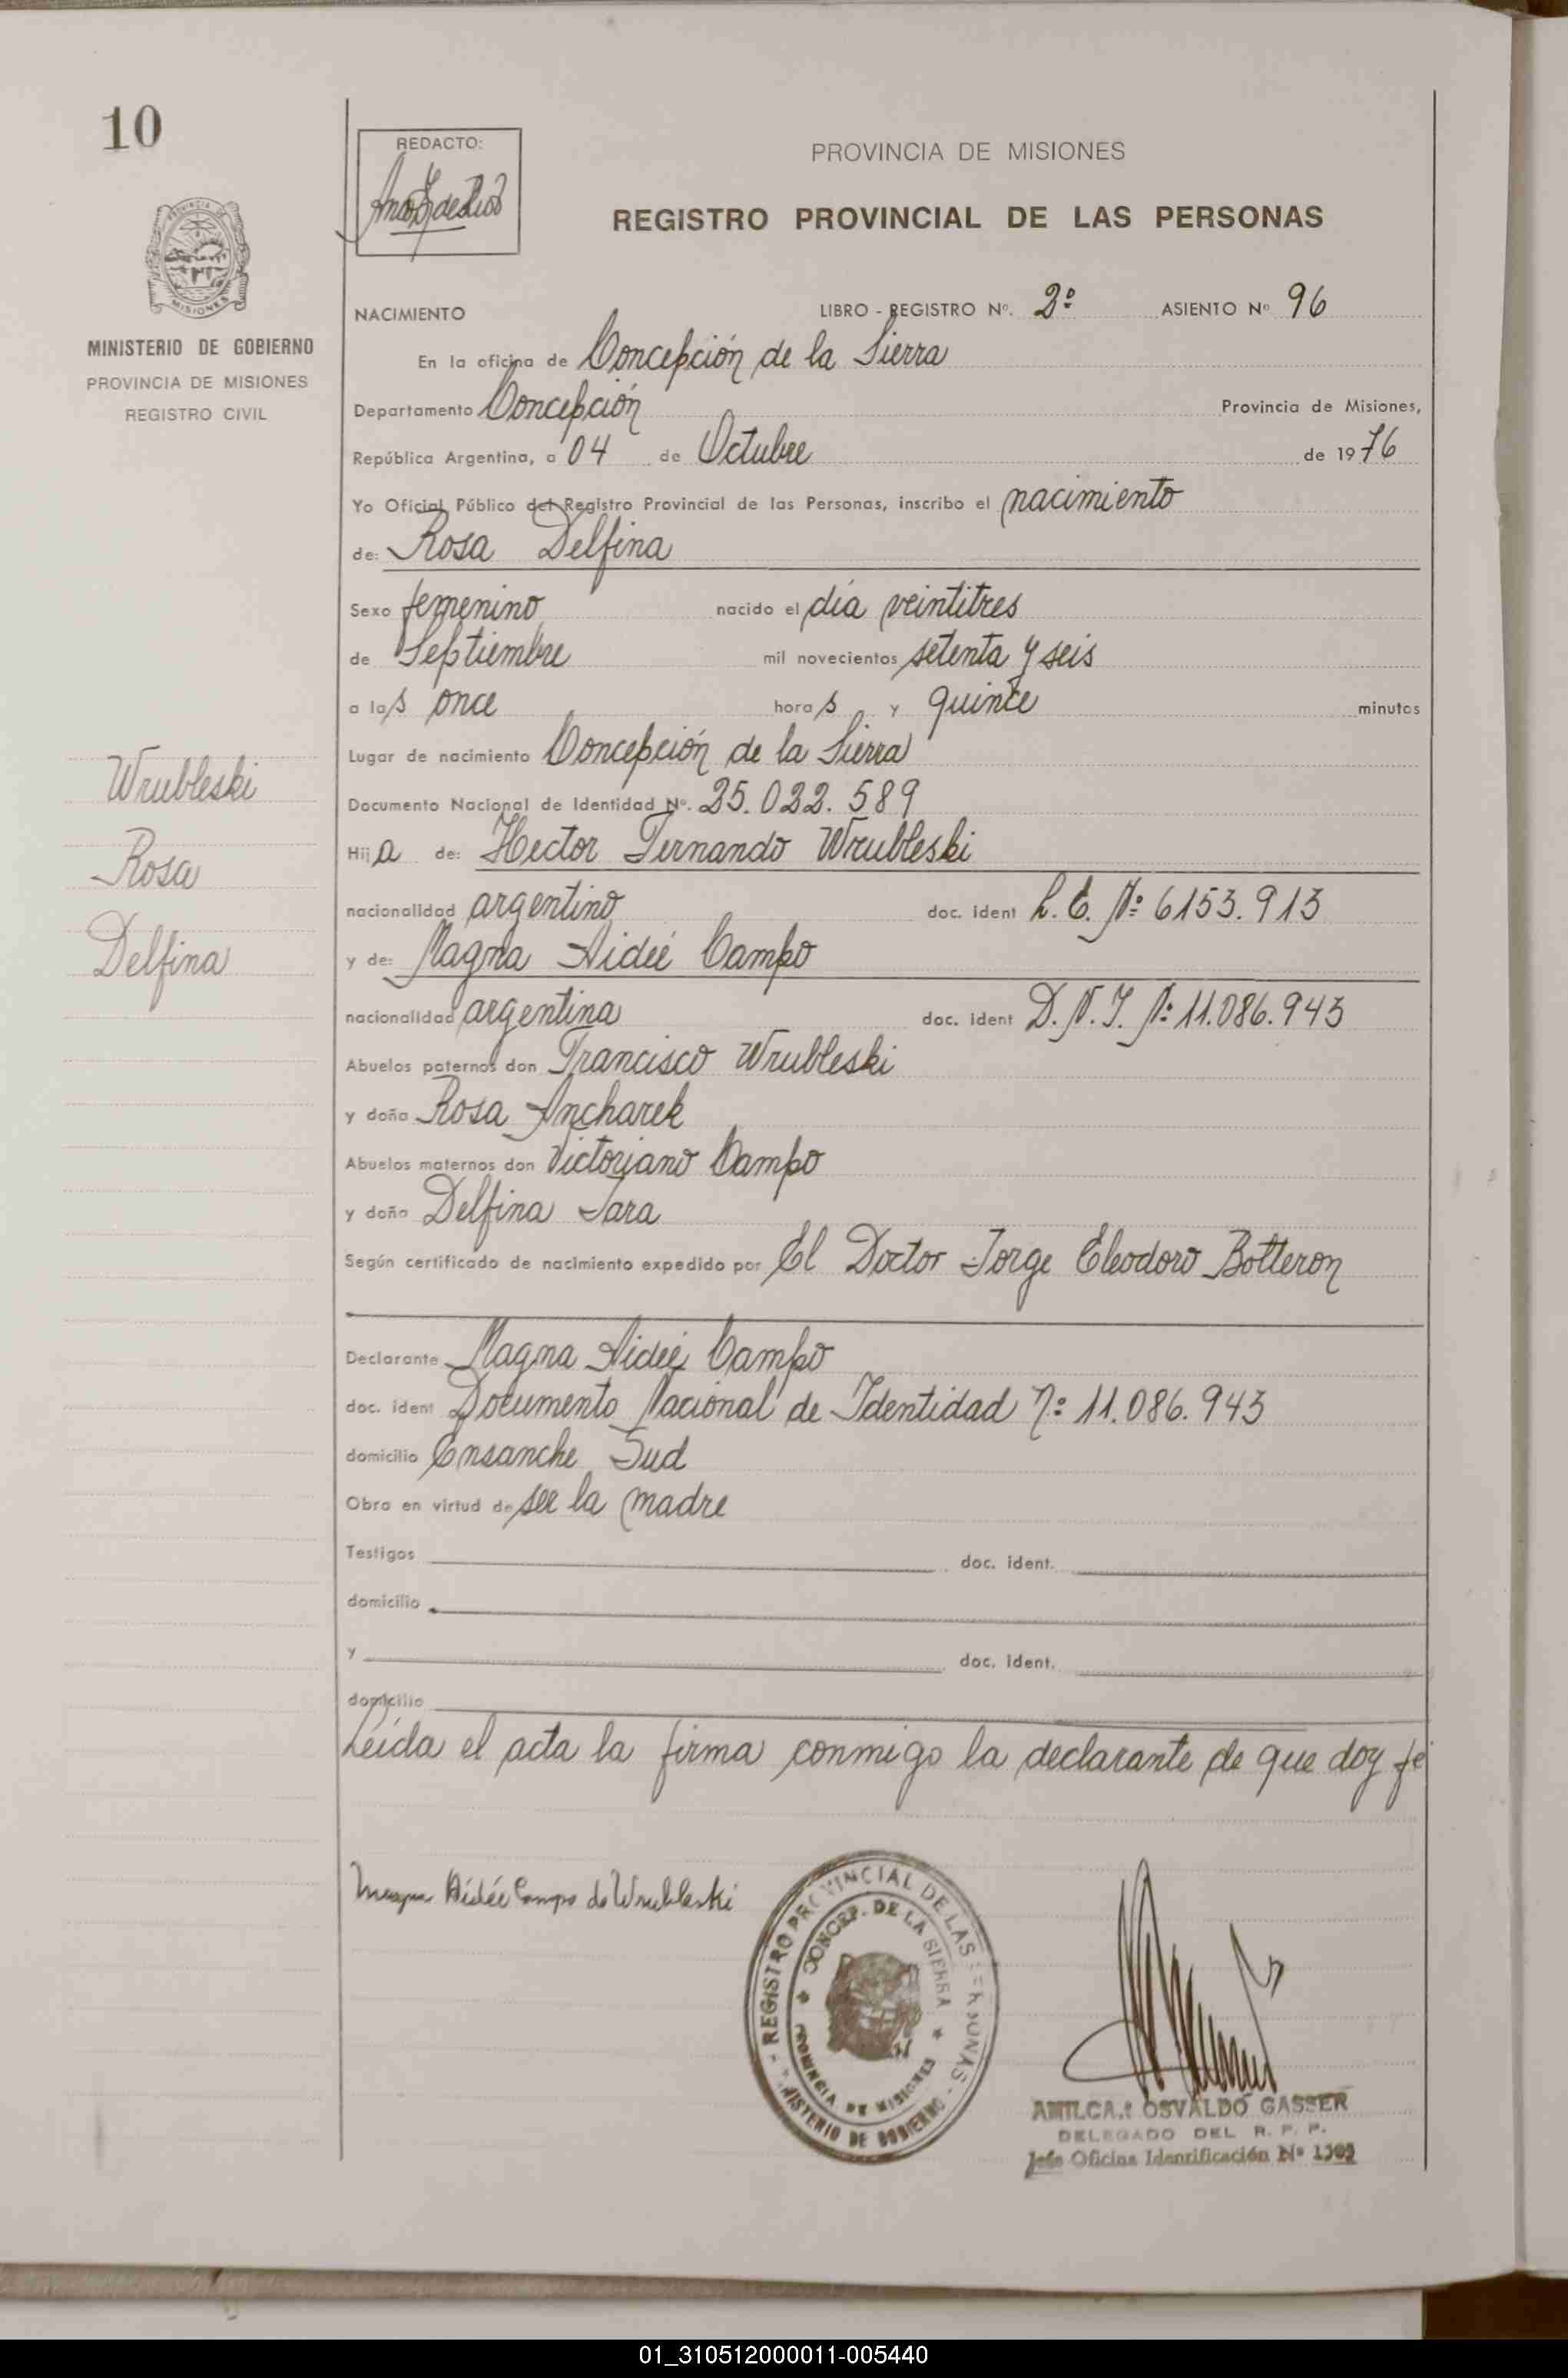 10
REDACTO:
PROVINCIA DE MISIONES
REGISTRO PROVINCIAL DE LAS PERSONAS
PROVINCIA DE
MISIONES
MINISTERIO DE GOBIERNO
PROVINCIA DE MISIONES
REGISTRO CIVIL
NACIMIENTO LIBRO - REGISTRO Nº. 2º ASIENTO Nº 96
En la oficina de Concepción de la Sierra
Departamento Concepción Provincia de Misiones,
República Argentina, a 04 de Octubre de 1976
Yo Oficial Público del Registro Provincial de las Personas, inscribo el nacimiento
de: Rosa Delfina
Sexo femenino nacido el día veintitres
de Septiembre mil novecientos setenta y seis
a las once horas y quince minutos
Lugar de nacimiento Concepción de la Sierra
Documento Nacional de Identidad Nº. 25.022.589
Hija de: Hector Fernando Wrubleski
nacionalidad argentino doc. ident L.E. Nº 6153.913
y de: Magna Aideé Campo
nacionalidad argentina doc. ident D.N.I. Nº 11.086.943
Abuelos paternos don Francisco Wrubleski
y doña Rosa Ancharek
Abuelos maternos don Victoriano Campo
y doña Delfina Jara
Según certificado de nacimiento expedido por El Doctor Jorge Eleodoro Botteron
Declarante Magna Aideé Campo
doc. ident Documento Nacional de Identidad Nº 11.086.943
domicilio Ensanche Sud
Obra en virtud de ser la madre
Testigos doc. ident.
domicilio
y doc. ident.
domicilio
Leída el acta la firma conmigo la declarante de que doy fe
Wrubleski
Rosa
Delfina
Magna Aidée Campo de Wrubleski
REGISTRO PROVINCIAL DE LAS PERSONAS - MINISTERIO DE GOBIERNO -
CONCEP. DE LA SIERRA
PROVINCIA DE MISIONES
AMILCAR OSVALDO GASSER
DELEGADO DEL R. P. P.
Jefe Oficina Identificación Nº
01_310512000011-005440